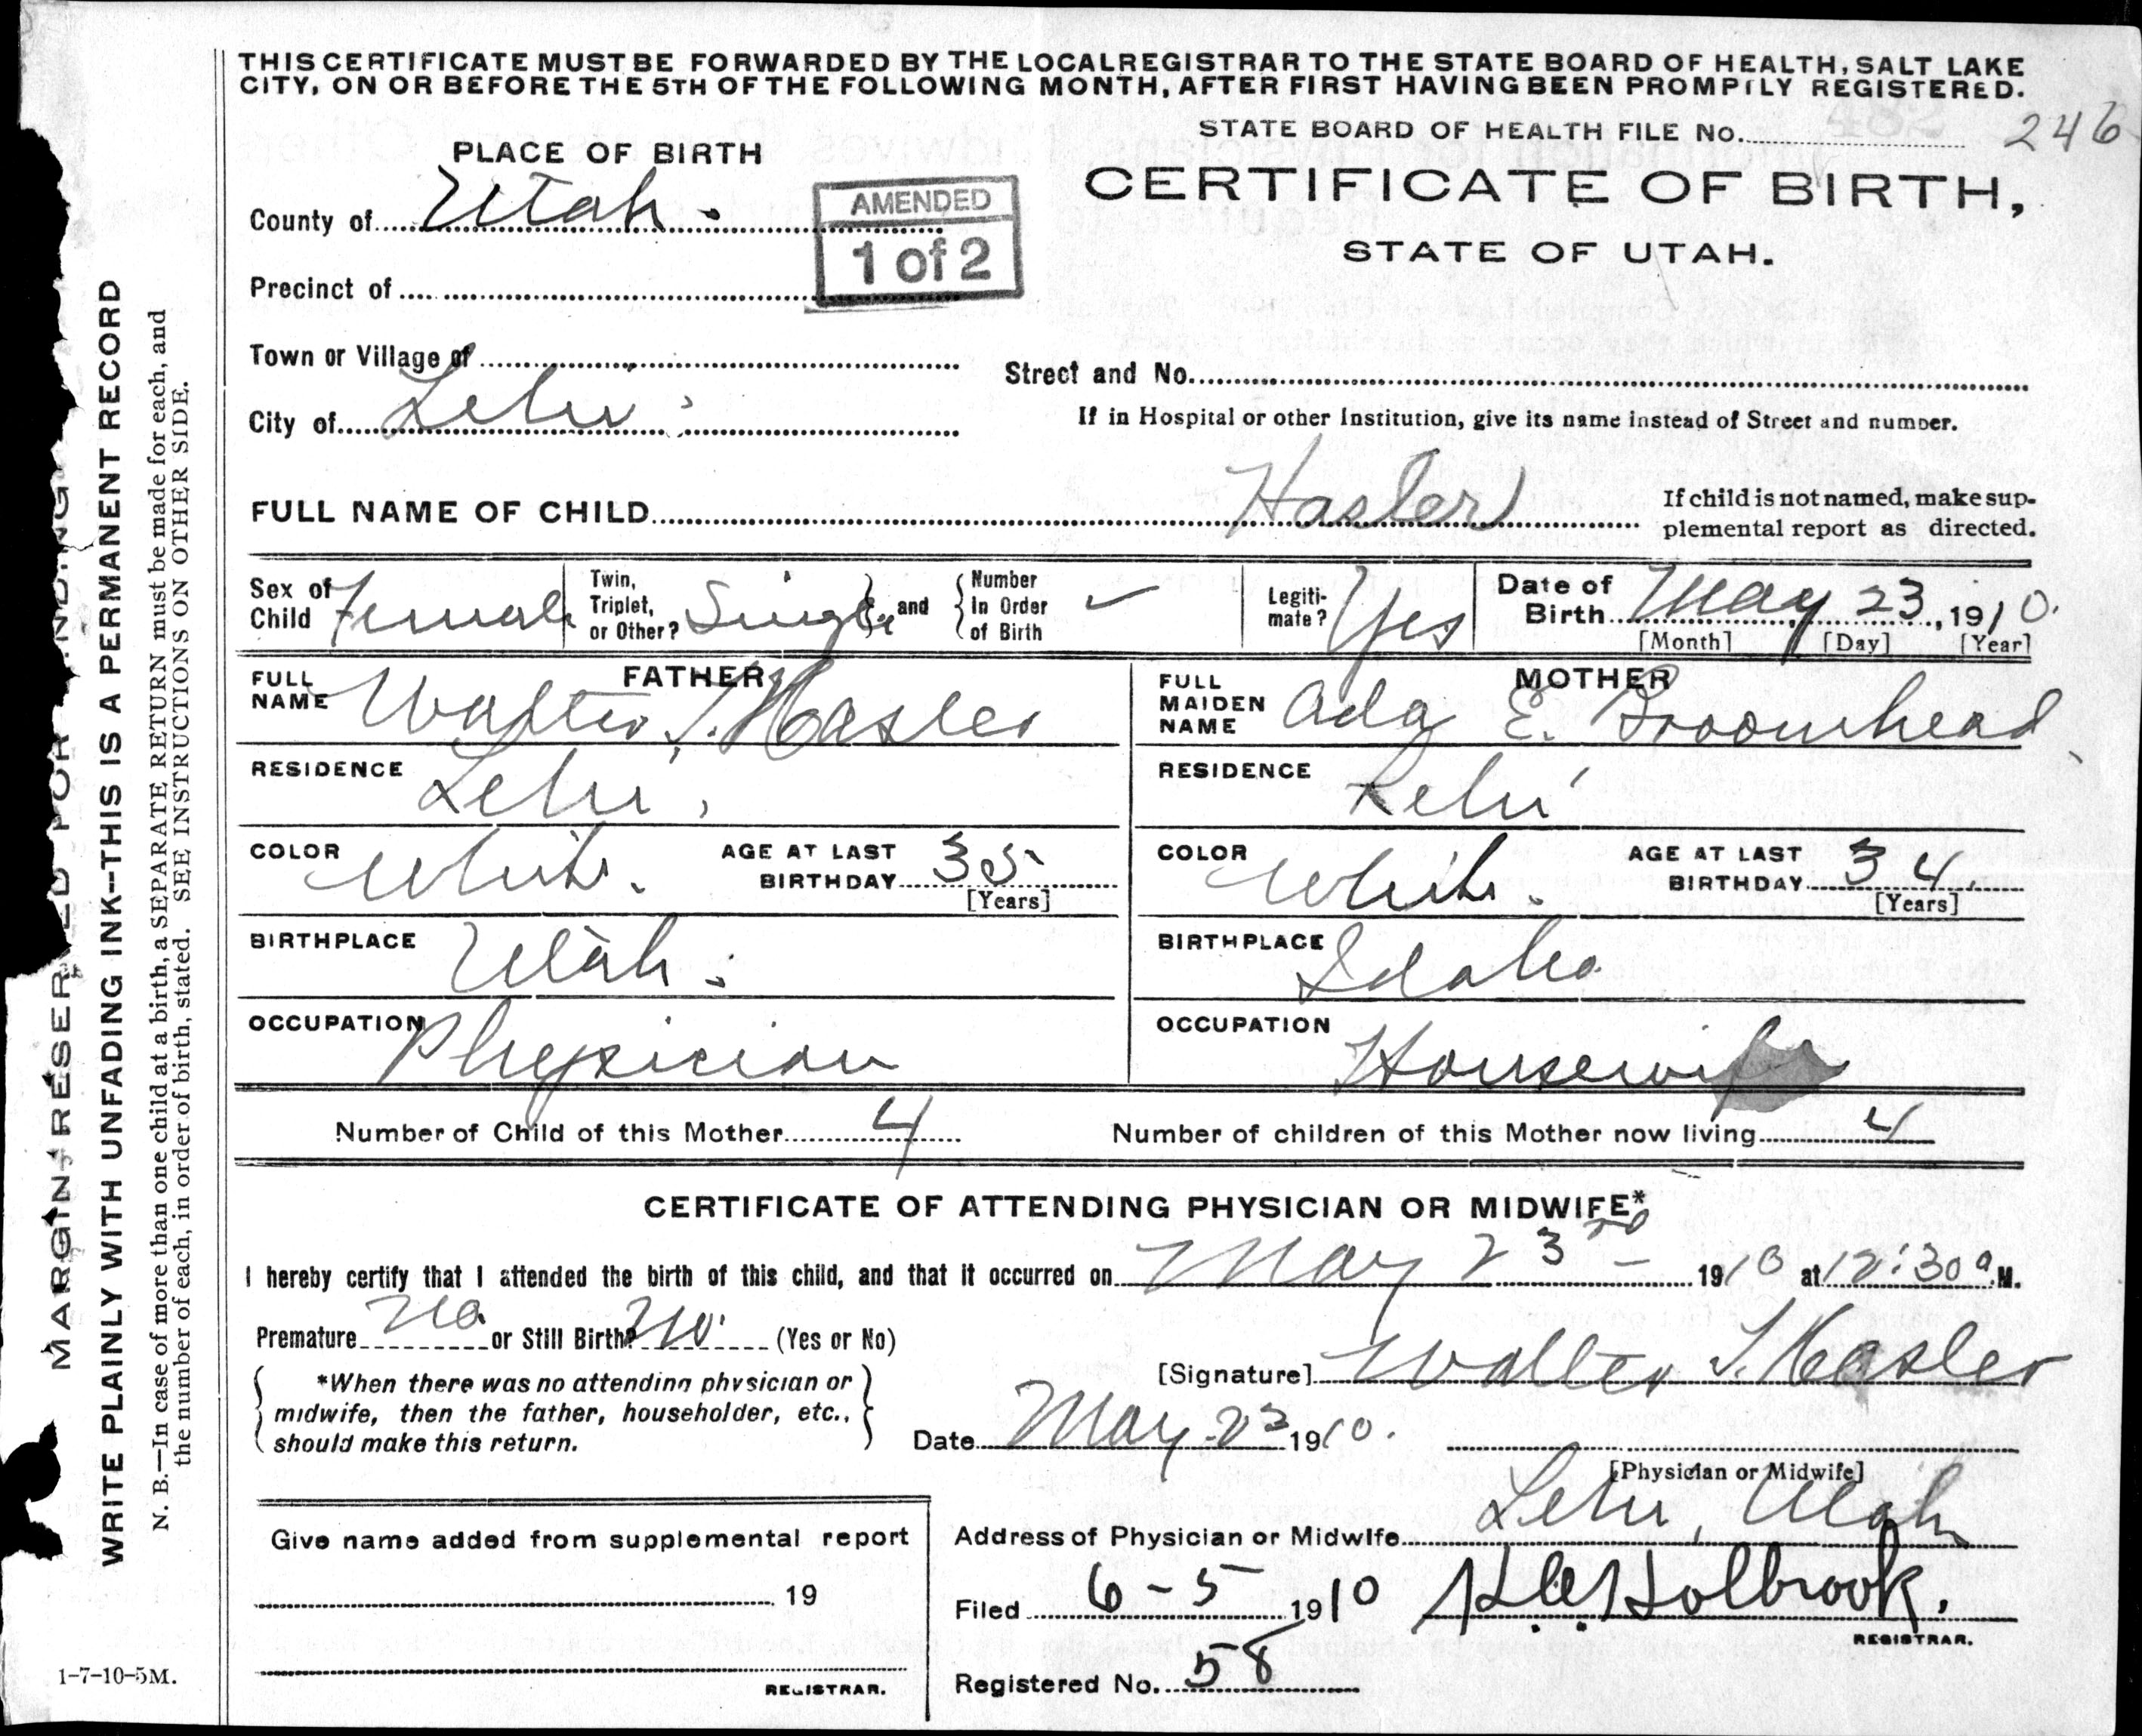 THIS CERTIFICATE MUST BE FORWARDED BY THE LOCAL REGISTRAR TO THE STATE BOARD OF HEALTH, SALT LAKE
CITY, ON OR BEFORE THE 5TH OF THE FOLLOWING MONTH, AFTER FIRST HAVING BEEN PROMPTLY REGISTERED.
STATE BOARD OF HEALTH FILE No. 246
PLACE OF BIRTH
CERTIFICATE OF BIRTH,
STATE OF UTAH.
County of Utah.
AMENDED
1 of 2
Precinct of
Town or Village of
Street and No.
City of Lehi
If in Hospital or other Institution, give its name instead of Street and number.
FULL NAME OF CHILD Hasler
If child is not named, make sup-
plemental report as directed.
Sex of Child Female
Twin, Triplet, or Other? Single and Number In Order of Birth
Legiti-mate? Yes
Date of Birth May 23, 1910.
[Month] [Day] [Year]
FATHER
FULL NAME Walter T. Hasler
MOTHER
FULL MAIDEN NAME Ada E. Broomhead
RESIDENCE Lehi,
RESIDENCE Lehi
COLOR White. AGE AT LAST BIRTHDAY 35 [Years]
COLOR White. AGE AT LAST BIRTHDAY 34 [Years]
BIRTHPLACE Utah.
BIRTHPLACE Idaho
OCCUPATION Physician
OCCUPATION Housewife
Number of Child of this Mother 4
Number of children of this Mother now living 4
CERTIFICATE OF ATTENDING PHYSICIAN OR MIDWIFE*
I hereby certify that I attended the birth of this child, and that it occurred on May 23rd 1910 at 12:30 a.M.
Premature No. or Still Birth? No. (Yes or No)
*When there was no attending physician or
midwife, then the father, householder, etc.,
should make this return.
[Signature] Walter T. Hasler
Date May 23 1910.
[Physician or Midwife]
Address of Physician or Midwife Lehi, Utah
Give name added from supplemental report
19
REGISTRAR.
Filed 6-5 1910 Holbrook.
REGISTRAR.
Registered No. 58
1-7-10-5M.
MARGIN RESERVED FOR BINDING
WRITE PLAINLY WITH UNFADING INK--THIS IS A PERMANENT RECORD
N. B.—In case of more than one child at a birth, a SEPARATE RETURN must be made for each, and
the number of each, in order of birth, stated. SEE INSTRUCTIONS ON OTHER SIDE.